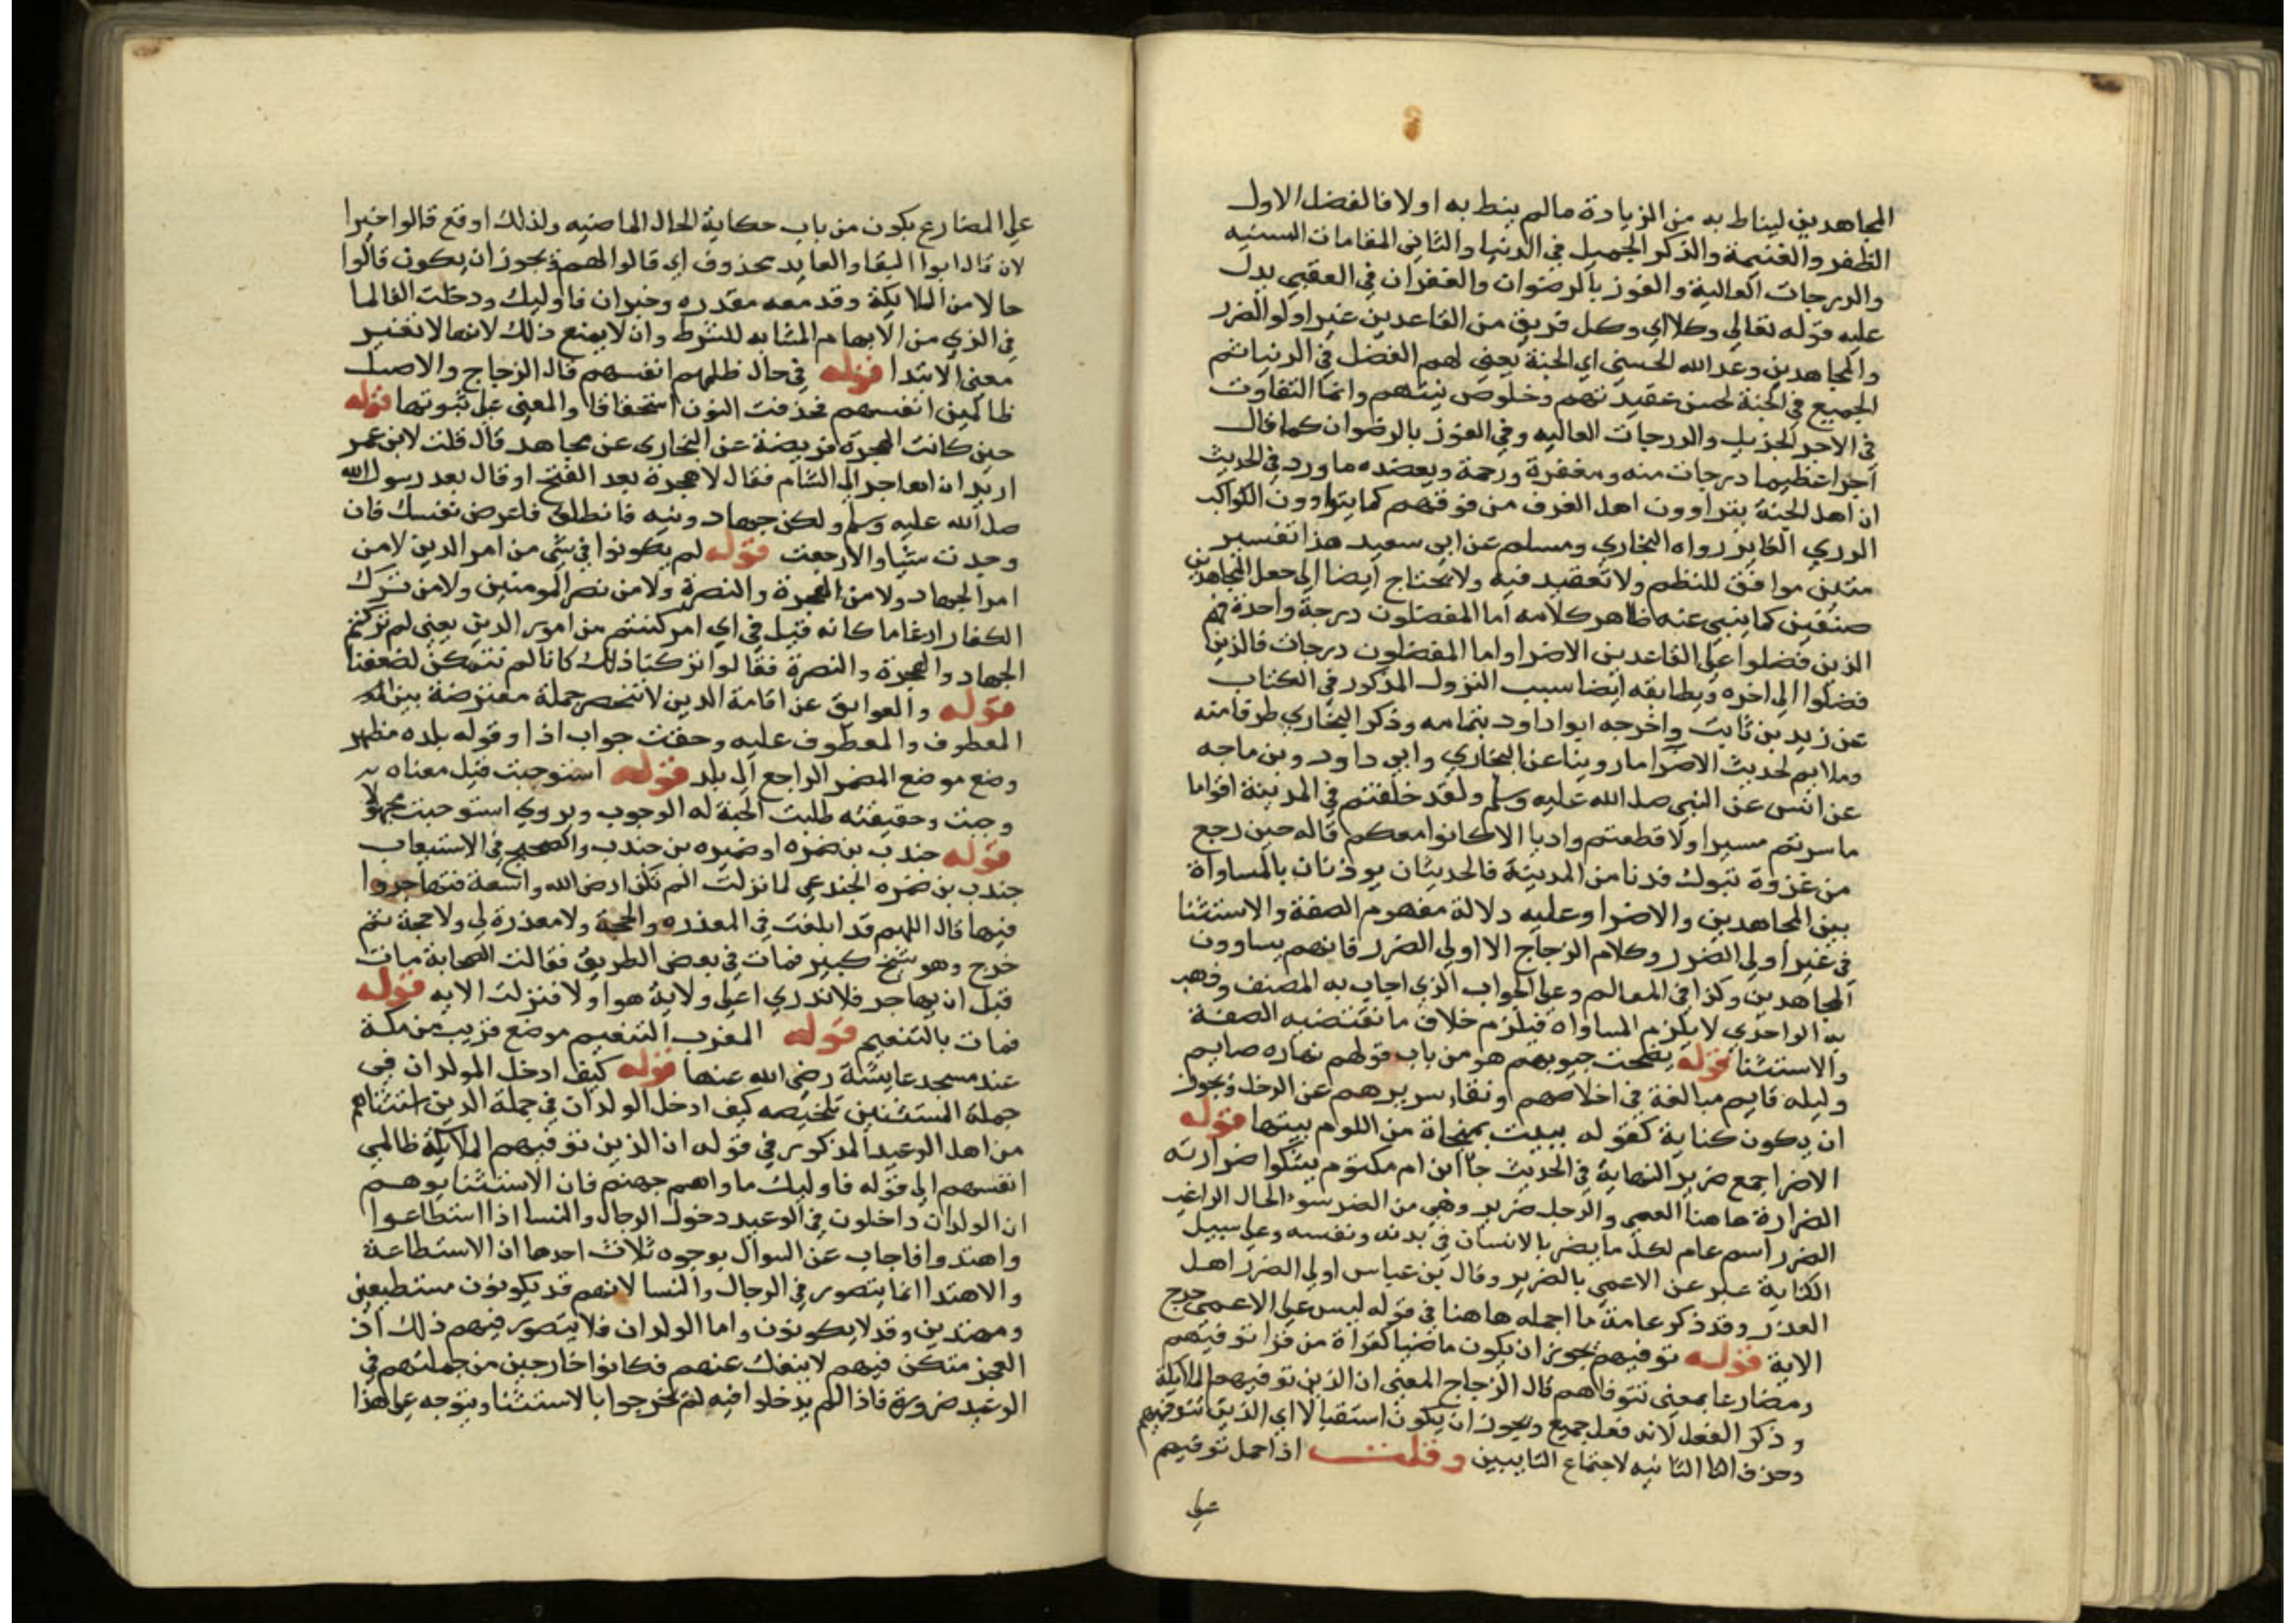 المجاهدين ليناط به من الزيادة مالم ينط به اولا فالفضل الاول
الظفر والغنيمة والذكر الجميل في الدنيا والثاني المقامات السنيه
والدرجات العالية والفوز بالرضوان والغفران في العقبي يدل
عليه قوله تعالي وكلا اي وكل فريق من القاعدين غير اولو الضرر
والمجاهدين وعد الله الحسني اي الجنة يعني لهم الفضل في الدنيا ثم
الجميع في الجنة لحسن عقيدتهم وخلوص نيتهم وانما التفاوت
في الاجر الجزيل والدرجات العاليه وفي الفوز بالرضوان كما قال
اجرا عظيما درجات منه ومغفرة ورحمة ويعضده ما ورد في الحديث
ان اهل الجنة يتراوون اهل الغرف من فوقهم كما يتراوون الكواكب
الدري الغابر رواه البخاري ومسلم عن ابي سعيد هذا تفسير
متين موافق للنظم ولا تعقيد فيه ولا يحتاج ايضا الي جعل المجاهدين
صنفين كما ينبي عنه ظاهر كلامه اما المفضلون درجة واحدة فهم
الذين فضلوا علي القاعدين الاضرا واما المفضلون درجات فالذين
فضلوا الي اخره ويطابقه ايضا سبب النزول المذكور في الكتاب
عن زيد بن ثابت واخرجه ابوا داود بتمامه وذكر البخاري طرفا منه
وملايم لحديث الاضرا ما روينا عن البخاري وابي داود وبن ماجه
عن انس عن النبي صلي الله عليه وسلم ولقد خلفتم في المدينة اقواما
ما سرتم مسيرا ولا قطعتم واديا الا كانوا معكم قاله حين رجع
من غزوة تبوك فدنا من المدينة فالحديثان يوذنان بالمساواة
بين المجاهدين والاضرا وعليه دلالة مفهوم الصفة والاستثنا
في غير اولي الضرر وكلام الزجاج الا اولي الضرر فانهم يساوون
المجاهدين وكذا في المعالم وعلي الجواب الذي اجاب به المصنف وذهب
به الواحدي لا يلزم المساواه فيلزم خلاف ما تقتضيه الصفة
والاستثنا قوله نصحت جيوبهم هو من باب قولهم نهاره صايم
وليله قايم مبالغة في اخلاصهم ونقا سريرهم عن الدخل ويجوز
ان يكون كناية كقوله يبيت بمنجاة من اللوم بيتها قوله
الاضرا جمع ضرير النهاية في الحديث جا ابن ام مكتوم يشكوا ضرارته
الضرارة هاهنا العمي والرجل ضرير وهي من الضر سوء الحال الراغب
الضرر اسم عام لكل ما يضر بالانسان في بدنه ونفسه وعلي سبيل
الكناية عبر عن الاعمي بالضرير وقال بن عباس اولي الضرر اهل
العذر وقد ذكر عامة ما اجمله هاهنا في قوله ليس علي الاعمي حرج
الاية قوله توفيهم يجوز ان يكون ماضيا كقراة من قرا توفيهم
ومضارعا بمعني تتوفاهم قال الزجاج المعني ان الذين توفيهم الملايكة
وذكر الفعل لانه فعل جميع ويجوز ان يكون استقبالا اي الذين تتوفيهم
وحذف التا الثانيه لاجتماع التايين وقلت اذا حمل توفيهم
علي
علي المضارع يكون من باب حكاية الحال الماضيه ولذلك اوقع قالوا خبرا
لان قال ابوا البقا والعايد محذوف اي قالوا لهم ويجوز ان يكون قالوا
حالا من الملايكة وقد معه مقدره وخبر ان فاوليك ودخلت الفا لما
في الذي من الابهام المشابه للشرط وان لا يمنع ذلك لانها لا تغير
معني الابتدا قوله في حال ظلمهم انفسهم قال الزجاج والاصل
ظالمين انفسهم فحذفت النون استخفافا والمعني علي ثبوتها قوله
حين كانت الهجرة فريضة عن البخاري عن مجاهد قال قلت لابن عمر
اريد ان اهاجر الي الشام فقال لا هجرة بعد الفتح او قال بعد رسول الله
صلي الله عليه وسلم ولكن جهاد ونيه فانطلق فاعرض نفسك فان
وجدت شيا والا رجعت قوله لم يكونوا في شي من امر الدين لا من
امر الجهاد ولا من الهجرة والنصرة ولا من نصر المومنين ولا من ترك
الكفار ادغاما كانه قيل في اي امر كنتم من امور الدين يعني لم تركتم
الجهاد والهجرة والنصرة فقالوا تركنا ذلك كانا لم نتمكن لضعفنا
قوله والعوايق عن اقامة الدين لا تنحصر جملة معترضة بين
المعطوف والمعطوف عليه وحقت جواب اذا وقوله بلده مظهر
وضع موضع المضمر الراجع الي بلد قوله استوجبت قيل معناه
وجبت وحقيقته طلبت الجنة له الوجوب ويروي استوجبت مجهولا
قوله جندب بن ضمره او ضميره بن جندب والصحيح في الاستيعاب
جندب بن ضمره الجندعي لما نزلت الم تكن ارض الله واسعة فتهاجروا
فيها قال اللهم قد ابلغت في المعذره والحجة ولا معذرة لي ولا حجة ثم
خرج وهو شيخ كبير فمات في بعض الطريق فقالت الصحابة مات
قبل ان يهاجر فلا ندري اعلي ولاية هو اولا فنزلت الايه قوله
فمات بالتنعيم قوله المغرب التنعيم موضع قريب من مكة
عند مسجد عايشة رضي الله عنها قوله كيف ادخل المولدان في
جملة المستثنين تلخيصه كيف ادخل الولدان في جملة الدين استثناهم
من اهل الوعيد المذكور في قوله ان الذين توفيهم الملايكة ظالمي
انفسهم الي قوله فاوليك ماواهم جهنم فان الاستثنا يوهم
ان الولدان داخلون في الوعيد دخول الرجال والنسا اذا استطاعوا
واهتدوا فاجاب عن السوال بوجوه ثلاث احدها ان الاستطاعة
والاهتدا انما يتصور في الرجال والنسا لانهم قد يكونون مستطيعين
ومهتدين وقد لا يكونون واما الولدان فلا يتصور فيهم ذلك اذ
العجز متمكن فيهم لا ينفك عنهم فكانوا خارجين من جملتهم في
الوعيد ضرورة فاذا لم يدخلوا فيه لم يخرجوا بالاستثنا ويتوجه علي هذا